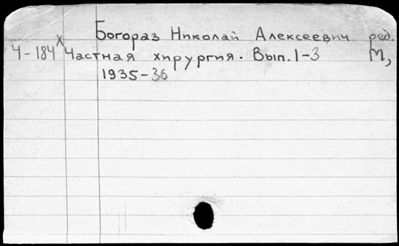 Богораз Николай Алексеевич ред.
Ч-184 х Частная хирургия. Вып. 1-3 М,
1935-36